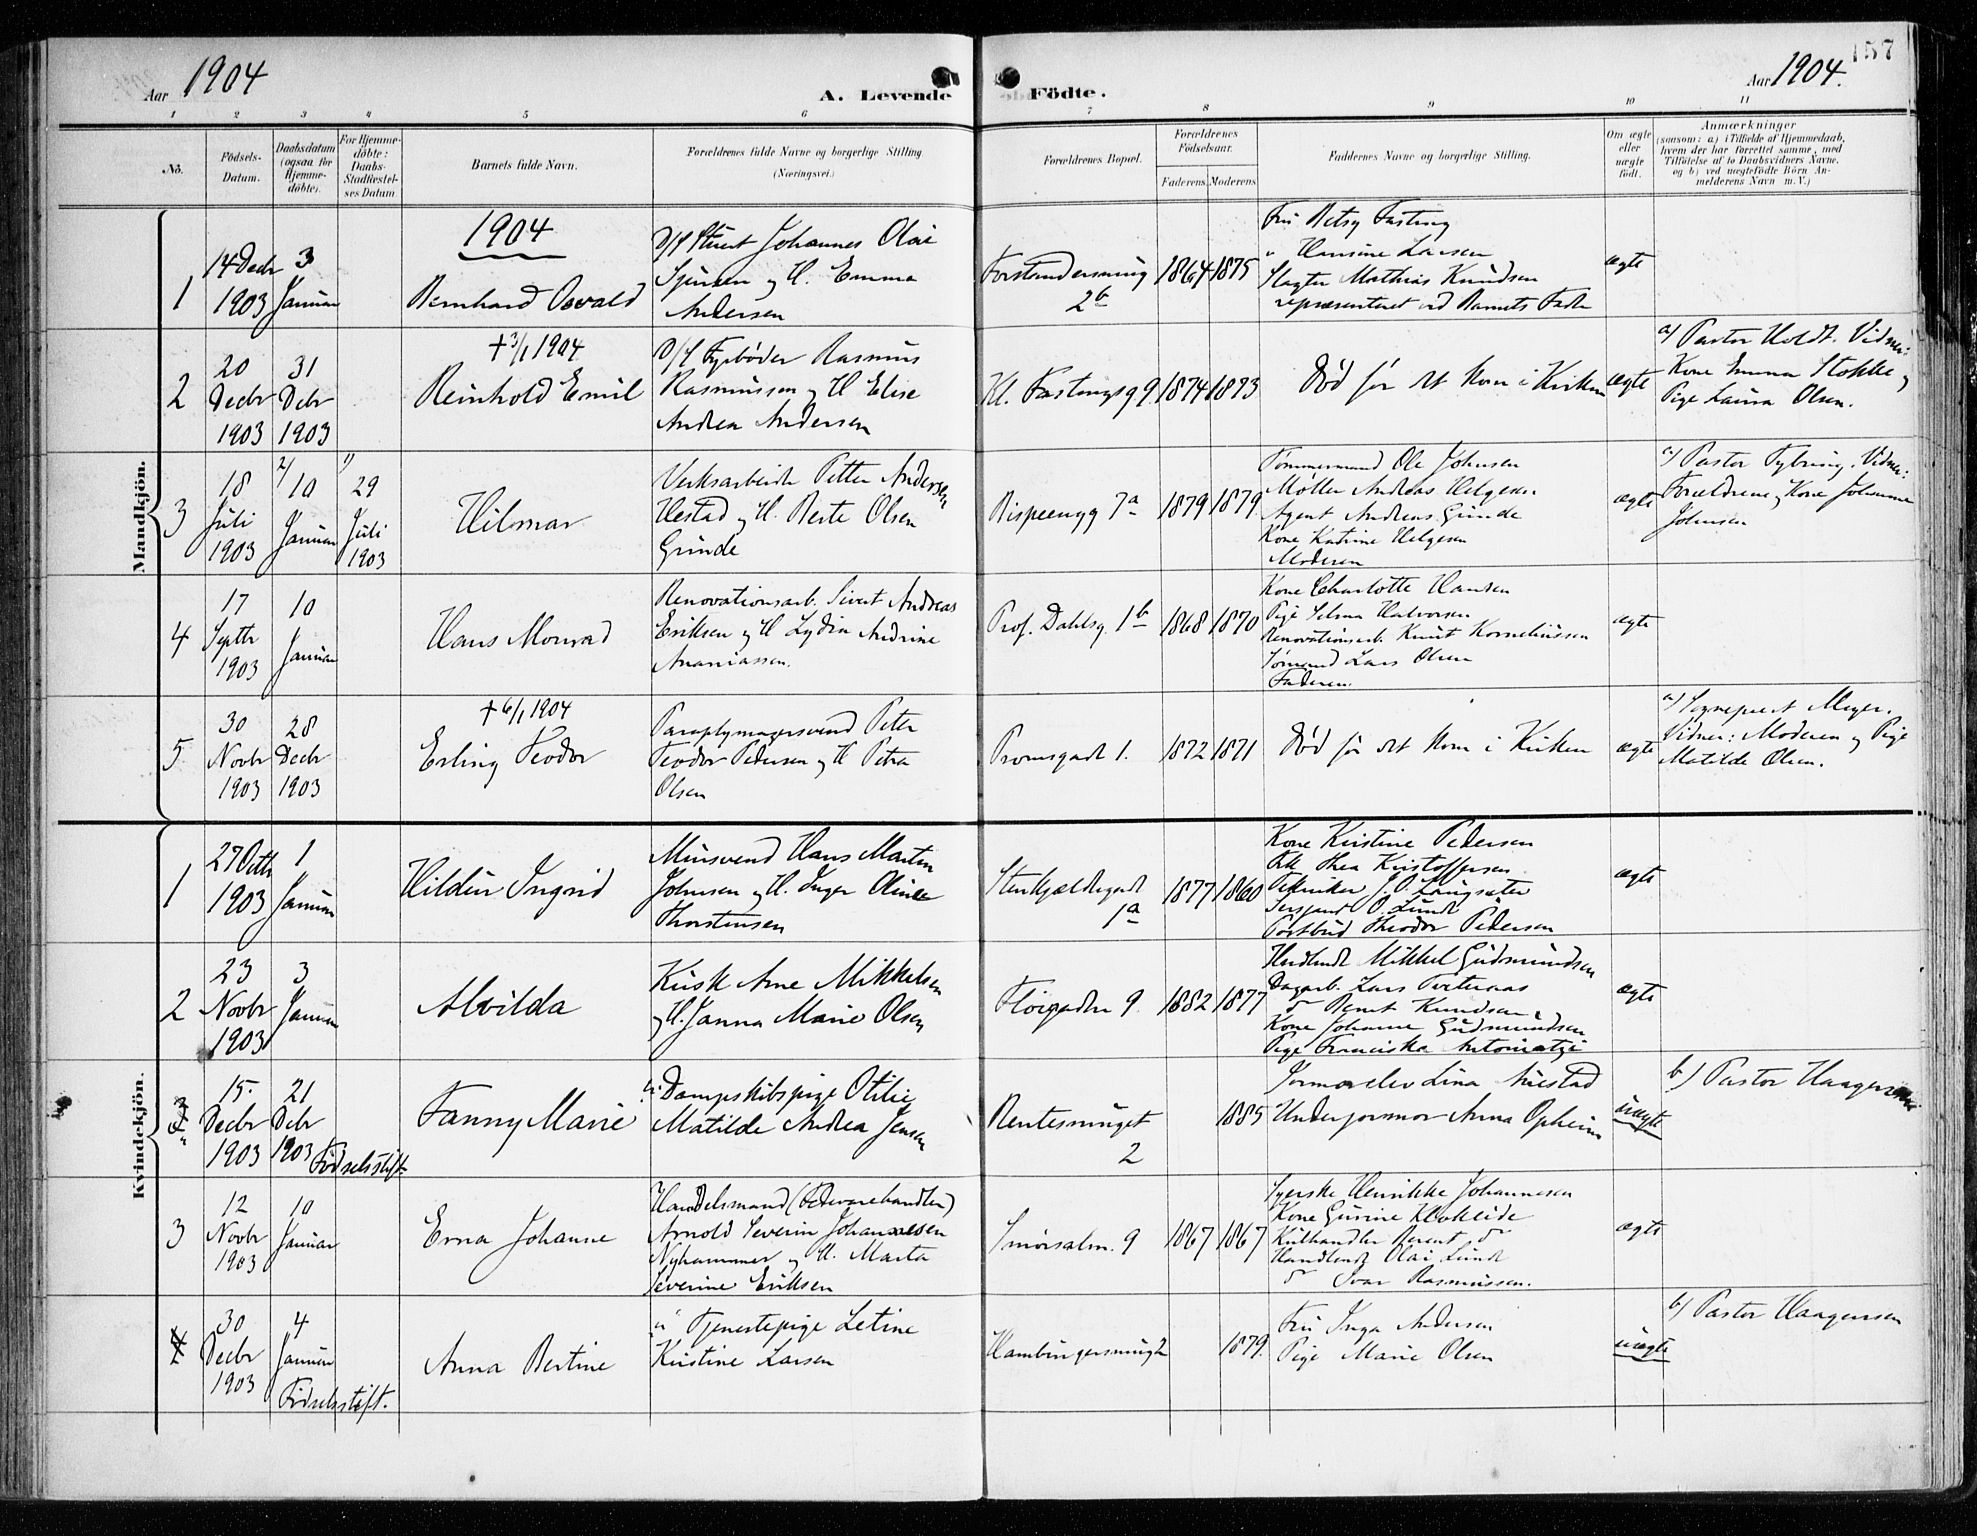 157
Aar 1904
A. Levende Födte.
Aar 1904.
1 2 3 4 5 6 7 8 9 10 11
No.
Födsels-
Datum.
Daabsdatum
(ogsaa for
Hjemme-
döbte).
For Hjemme-
döbte:
Daabs-
Stadfæstel-
ses Datum
Barnets fulde Navn.
Forældrenes fulde Navne og borgerlige Stilling.
(Næringsvei.)
Forældrenes Bopæl.
Forældrenes
Födselsaar.
Faderens. Moderens
Faddernes Navne og borgerlige Stilling.
Om ægte
eller
uægte
födt.
Anmærkninger
(saasom: a) i Tilfælde af Hjemmedaab,
hvem der har forrettet samme, med
Tilföielse af to Daabsvidners Navne.
og b) ved uægtefödte Börn An-
melderens Navn m. V.)
Mandkjön.
1904
1
14 Decbr
1903
3
Januar
Bernhard Osvald
Johannes Olai
og H. Emma
Andersen
2b
1864
1875
Fru Betsy Fasting
" Hansine Larsen
Slagter Mathias Knudsen
repræsenteret ved Barnets Fader
ægte
2
20
Decbr
1903
31
Debr
1903
+ 3/1 1904
Reinhold Emil
D/S Fyrbøder Rasmus
Rasmussen og H Elise
Andrea Andersen
Kl. Fastingsg 9.
1874
1873
Død før det kom i Kirken
ægte
a) Pastor Holdt. Vidner:
Kone Emma Stokke og
Pige Laura Olsen.
3
18
Juli
1903
2/ 10
Januar
1) 29
Juli
1903
Hilmar
Verksarbeider Petter Andersen
Hestad og H. Berte Olsen
Grinde
Bispeengg 7a
1879
1879
Tømmermand Ole Johnsen
Møller Andreas Helgesen
Agent Andreas Grinde
Kone Katrine Helgesen
Moderen
ægte
a) Pastor Fybring. Vidner:
Forældrene og Kone Johanne
Johnsen
4
17
Septbr
1903
10
Januar
Hans Monrad
Renovationsarb. Sivert Andreas
Eriksen og H Lydia Andrine
Ananiassen.
Prof. Dahlsg. 1b
1868
1870
Kone Charlotte Hansen
Pige Selma Halvorsen
Renovationsarb. Knut Korneliussen
Sømand Lars Olsen
Faderen.
ægte
5
30
Novbr
1903
28
Decbr
1903
+ 6/1 1904
Erling Teodor
Paraplymagersvend Peter
Teodor Pedersen og H Petra
Olsen
Promsgade 1.
1872
1871
Død før det kom i Kirken
ægte
a) Sognepræst Meyer.
Vidner: Moderen og Pige
Matilde Olsen.
Kvindekjön.
1
27 Octbr
1903
1
Januar
Hildur Ingrid
Mursvend Hans Martin
Johnsen og H. Inger Oline
Thorstensen
Stenkjældergade
1a
1877
1860
Kone Kristine Pedersen
Frk Thea Kristoffersen
Tekniker J. O. Langsæter
Sersjant O. Lunde
Postbud Theodor Pedersen
ægte
2
23
Novbr
1903
3
Januar
Alvilda
Kusk Arne Mikkelsen
og H. Janna Marie Olsen
Fløigaden 9.
1882
1877
Mikkel Gudmundsen
Dagarb. Lars
Bernt Knudsen
Kone Johanne Gudmundsen
Pige Franciska
ægte
3
15.
Decbr
1903
21
Debr
1903
Fødselsstift.
Fanny Marie
Dampskibspige Otilie
Matilde Andrea Jensen
Rentesmuget
2
1885
Jormorelev Lina Aarestad
Underjormor Anna Opheim
uægte
b) Pastor Haagensen
3
12
Novbr
1903
10
Januar
Erna Johanne
Handelsmand (Fedevarehandler)
Arnold Severin Johannesen
Nyhammer og H. Marta
Severine Eriksen
Smørsalm. 9
1867
1867
Syerske Henrikke Johannesen
Kone Gurine Klokeide
Kulhandler Berent do
Handlende Olai Lunde
do Ivar Rasmussen.
ægte
4
30
Decbr
1903
4
Januar
Fødselsstift.
Anna Bertine
Tjenestepige Letine
Kristine Larsen
1879.
Fru Inga Andersen
Pige Marie Olsen
uægte
b) Pastor Haagensen